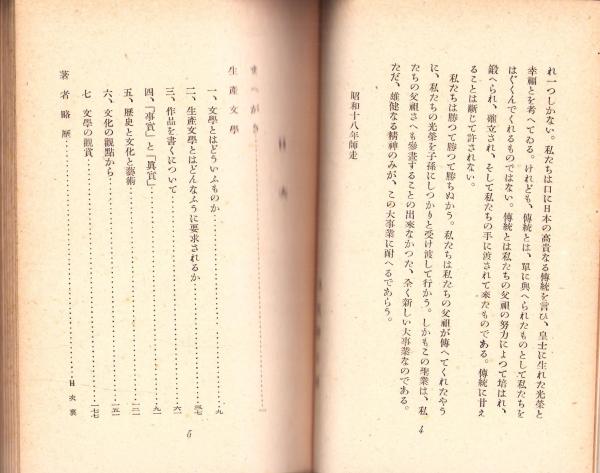 れ一つしかない。私たちは口に日本の高貴なる傳統を言ひ、皇土に生れた光榮と
幸福とを考へてゐる。けれども、傳統とは、單に與へられたものとして私たちを
はぐくんでくれるものではない。傳統とは私たちの父祖の努力によつて培はれ、
鍛へられ、確立され、そして私たちの手に渡されて來たものである。傳統に甘え
ることは斷じて許されない。
私たちは勝つて勝つて勝ちぬかう。私たちは私たちの父祖が傳へてくれたやう
に、私たちの光榮を子孫にしつかりと受け渡して行かう。しかもこの聖業は、私
たちの父祖さへも參畫することの出來なかつた、全く新しい大事業なのである。
ただ、雄健なる精神のみが、この大事業に耐へるであらう。
昭和十八年師走
4
生産文學
一、文學とはどういふものか……九
二、生産文學とはどんなふうに要求されるか……三七
三、作品を書くについて……六一
四、「事實」と「眞實」……九一
五、歷史と文化と藝術……一二一
六、文化の觀點から……一五一
七　文學の觀賞……一七七
著者略歷……目次裏
5